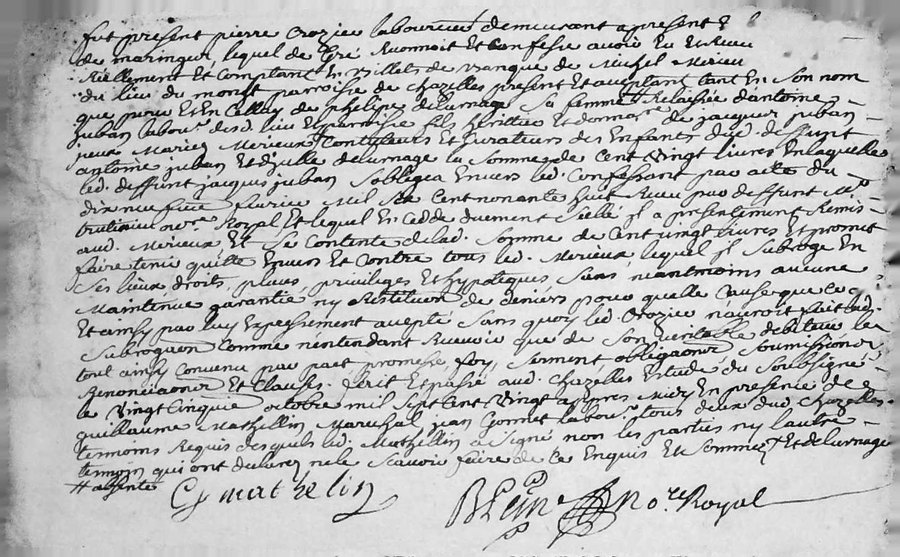 fut present pierre Crozier laboureur demeurant a present
de maringes, lequel de gré Reconnoit et Confesse avoir Eu et Receu
Reellement et Comptant En billets de banque de Michel Merieu
du lieu du mont parroisse de chazelles present et aceptant tant En son nom
que pour et En Celluy de phelipe delurnage Sa femme # Relaissée d'antoine
Juban labour. dud. lieu et parroisse fils heritier et donnat.re de Jacques Juban
yceux Mariez Merieux Tutyteurs et Curateurs des Enfants dud. deffunt
antoine juban et d'ytelle delurnage la Somme de Cent Vingt livres En laquelle
led. deffunt jacques juban S'obligea Envers led. Confessant par acte du
dix neufieme fevrier Mil Six Cent nonante huit Receu par deffunt Me
no.re Royal Et lequel En Cedde duement Selle jl a presentement Remis
aud. Merieux Et Se Contente de lad. Somme de Cent vingt livres Et promet
faire tenir quitte Envers Et Contre tous led. Merieux, lequel jl Subroge En
Ses lieux droits, places, privileges Et hypoteques, Sans neantmoins aucune
Maintenue garantie ny Restitution de deniers pour qualle Cause que Ce
Et ainsy par luy Expressement accepté Sans quoy led. Crozier n'auroit fait lad.
Subrogation Comme n'entendant Recevoir que de Son veritable debiteur le
tout ainsy Convenu par pact promesse, foy, Serment, obligaons Soumissions
Renonciaons Et Clauses. fait Et passé aud. Chazelles Estude du Soubsigné
le Vingt Cinquie octobre mil Sept Cent Vingt appres Midy En presence de
guillaume Mathellin Marechal jean Gonnet labour. tous deux dud. Chazelles
temoins Requis desquels led. Mathellin a Signé non les parties ny l'autre
temoin qui ont declaré ne le Scavoir faire de Ce Enquis Et Sommez # Et delurnage
# absente
G mathelin
BLein No.re Royal